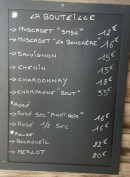 LA BOUTEILLE
→ MUSCADET "SMSE" 12€
→ MUSCADET 16€
→ SAUVIGNON 15€
→ CHENIN 15€
→ CHARDONNAY 18€
→ CHAMPAGNE "BRUT" 35€
ROSÉ
→ ROSÉ SEC "PINOT NOIR" 16€
→ ROSÉ 1/2 SEC 16€
ROUGE
→ BOURGUEIL 22€
→ MERLOT 20€